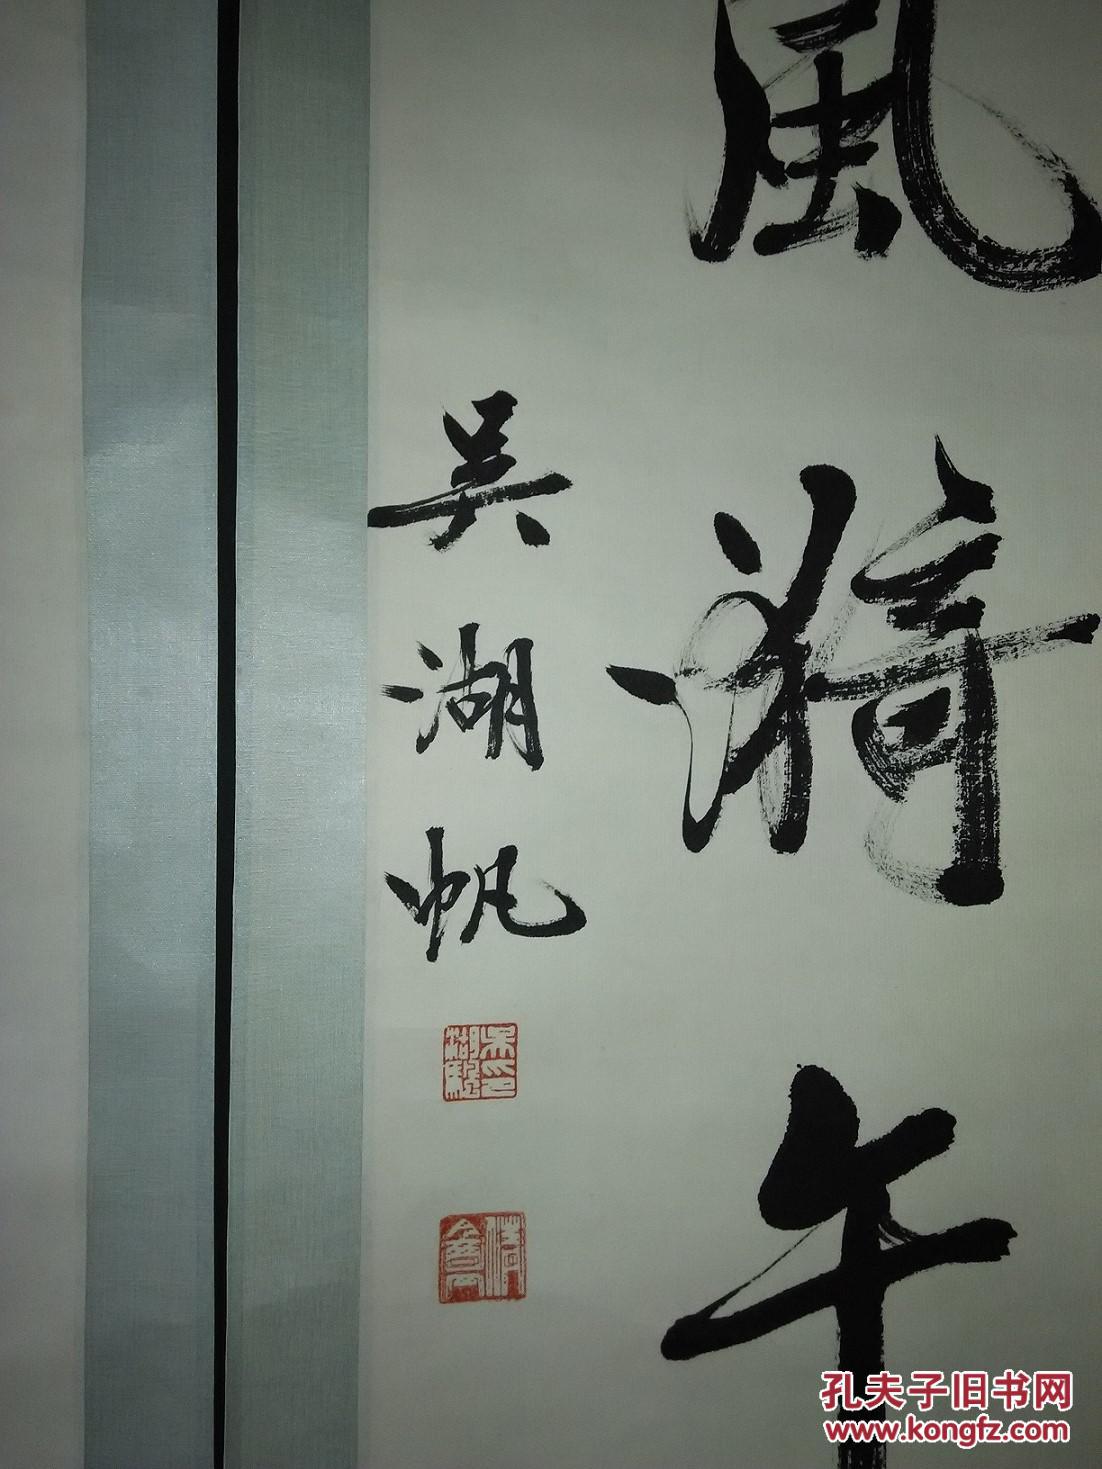 風漪午
吴湖帆
孔夫子旧书网
www.kongfz.com